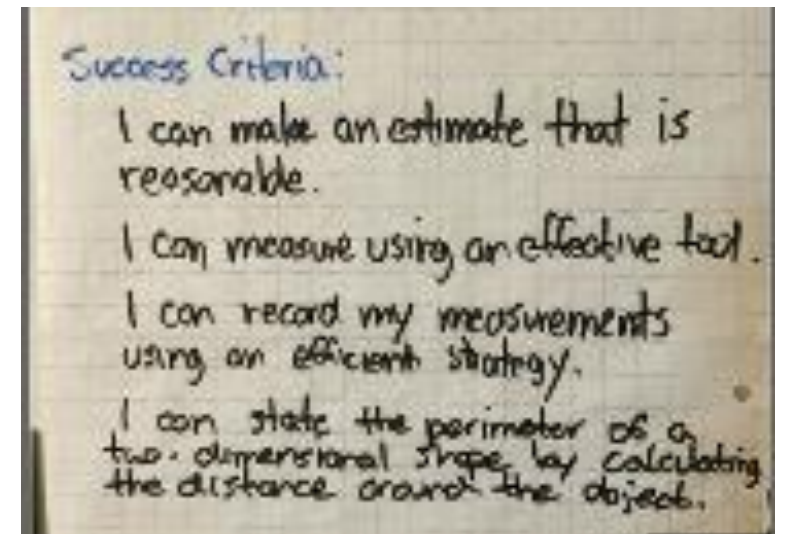 Success Criteria:
I can make an estimate that is
reasonable.
I can measure using an effective tool.
I can record my measurements
using an efficient strategy.
I can state the perimeter of a
two-dimensional shape by calculating
the distance around the object.